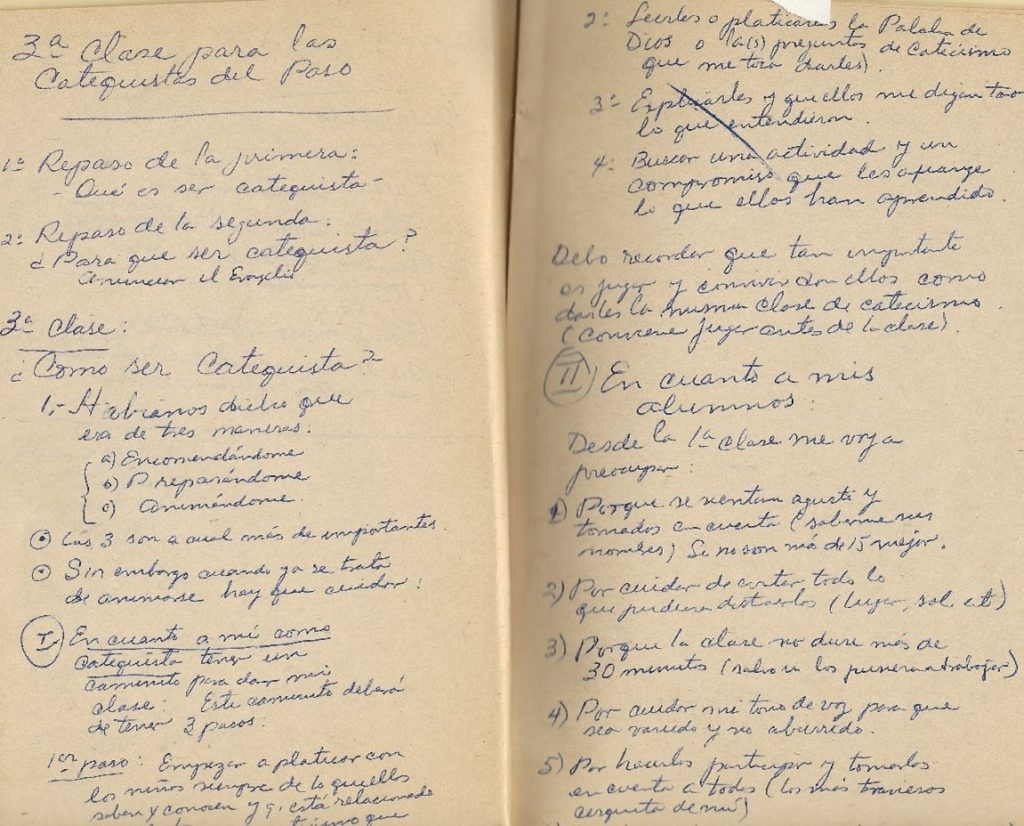 3ª Clase para las
Catequistas del Paso
1º Repaso de la primera:
Qué es ser catequista-
2º Repaso de la segunda:
¿Para que ser catequista?
Anunciar el Evangelio
3ª Clase:
¿Como ser Catequista?
1.- Habiamos dicho que
era de tres maneras:
a) Encomendándome
b) Preparándome
c) Animándome.
Las 3 son a cual más de importantes.
Sin embargo cuando ya se trata
de animarse hay que cuidar:
I En cuanto a mí como
catequista tener un
caminito para dar mi
clase: Este caminito deberá
de tener 3 pasos:
1er paso: Empezar a platicar con
los niños siempre de lo que ellos
saben y conocen y q. está relacionado
que
2º Leerles o platicarles la Palabra de
Dios o la(s) preguntas de Catecismo
que me toca darles).
3º Explicarles y que ellos me digan
lo que entendieron.
4º Buscar una actividad y un
compromiso que les afiance
lo que ellos han aprendido.
Debo recordar que tan importante
es jugar y convivir con ellos como
darles la misma clase de catecismo.
(Conviene jugar antes de la clase).
II En cuanto a mis
alumnos:
Desde la 1ª clase me voy a
preocupar:
1) Porque se sientan agusto y
tomados en cuenta (saberme sus
nombres) Si no son más de 15 mejor.
2) Por cuidar de evitar todo lo
que pudiera distraerlos (lugar, sol, etc)
3) Porque la clase no dure más de
30 minutos (salvo si los pusiera a trabajar)
4) Por cuidar mi tono de voz para que
sea variado y no aburrido.
5) Por hacerlos participar y tomarlos
en cuenta a todos (los más traviesos
cerquita de mí)